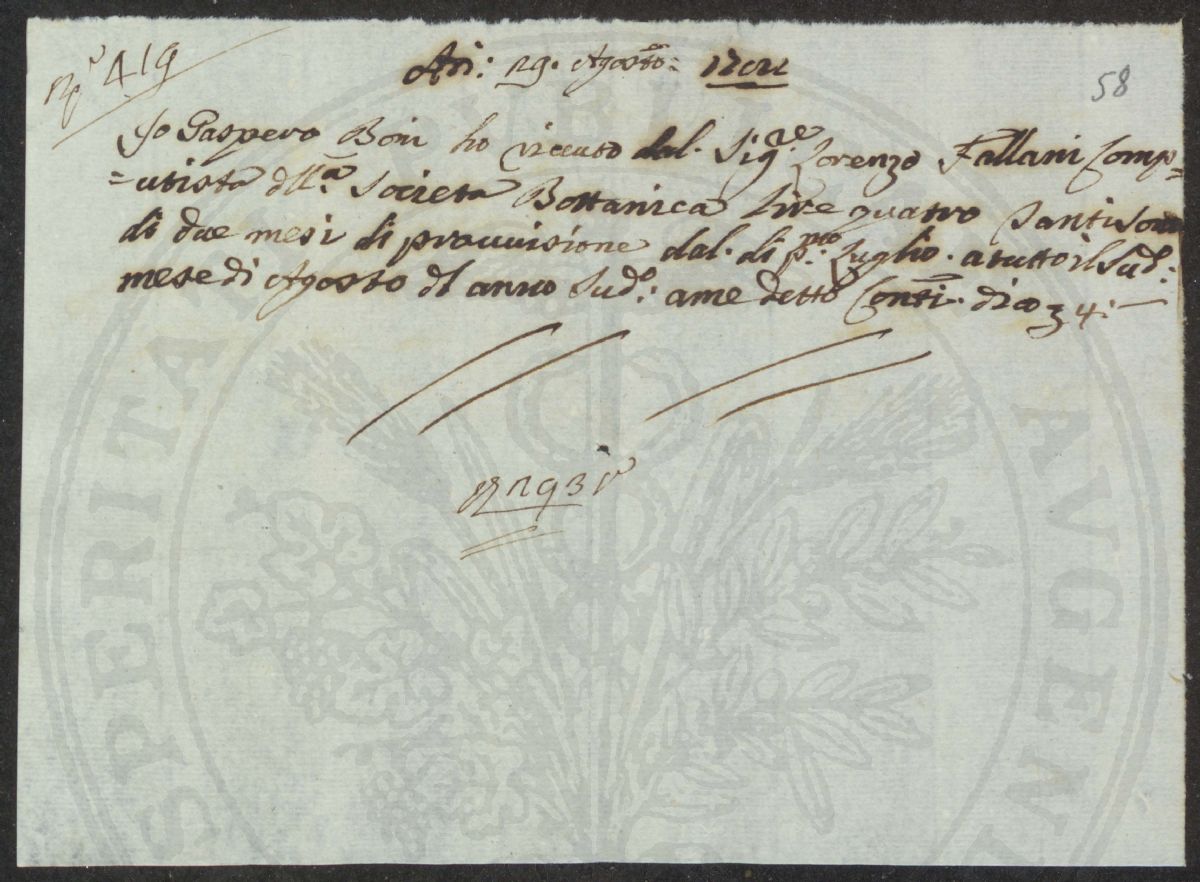 N.º 419
Adi: 29. Agosto:
58
Io Gaspero Boni ho riceuto dal. Sig.re Lorenzo Fallani Comp=
=utista dll.a Societa Bottanica Lire quatro
di due mesi di prouuisione dal. di p.mo Luglio. a tutto il Sud.:
mese di Agosto dl anno Sud.: a me detto Conti. dico 4:—
293
PROSPERITATI PVBLICAE AVGENDAE